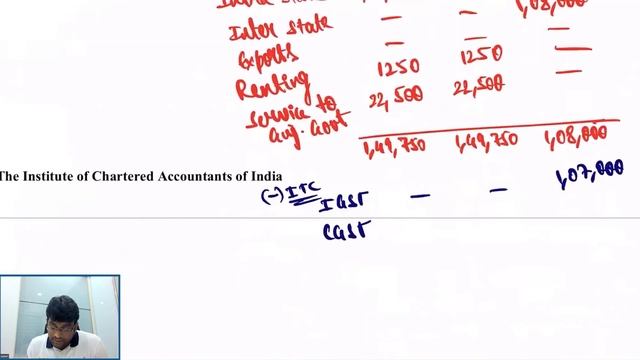 1,08,000
Inter state — — —
Exports — — —
Renting 1250 1250 —
Service to Aug. Govt 22,500 22,500
1,49,750 1,49,750 1,08,000
The Institute of Chartered Accountants of India
(-) ITC
IGST — — 1,07,000
CGST